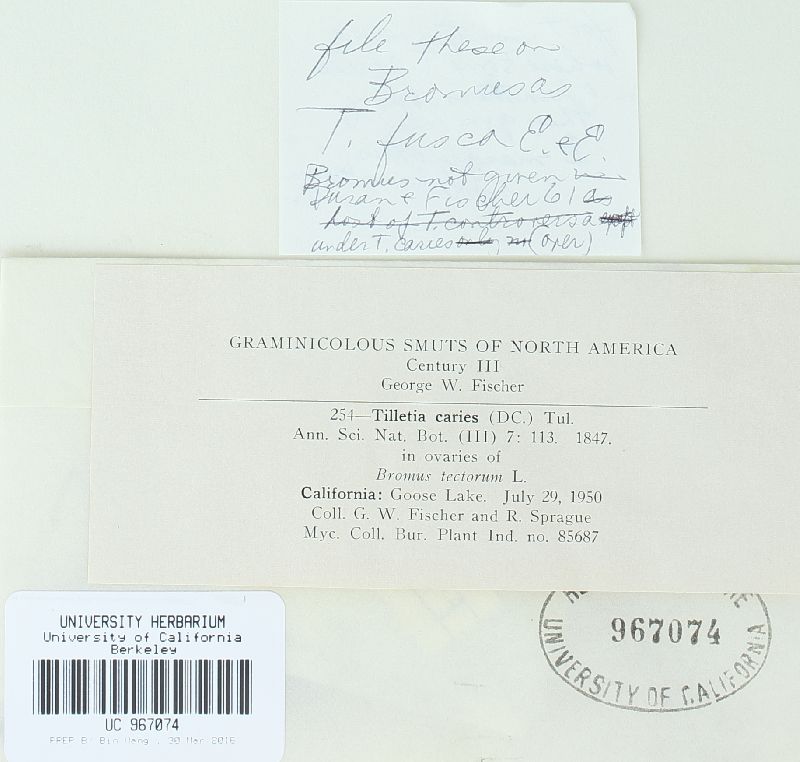 file these on
Bromus as
T. fusca E. & E.
Bromus not given in
Duran & Fischer 61 as
host of T. controversa
under T. caries only, (over)
GRAMINICOLOUS SMUTS OF NORTH AMERICA
Century III
George W. Fischer
254—Tilletia caries (DC.) Tul.
Ann. Sci. Nat. Bot. (III) 7: 113. 1847.
in ovaries of
Bromus tectorum L.
California: Goose Lake. July 29, 1950
Coll. G. W. Fischer and R. Sprague
Myc. Coll. Bur. Plant Ind. no. 85687
UNIVERSITY HERBARIUM
University of California
Berkeley
UC 967074
967074
UNIVERSITY OF CALIFORNIA